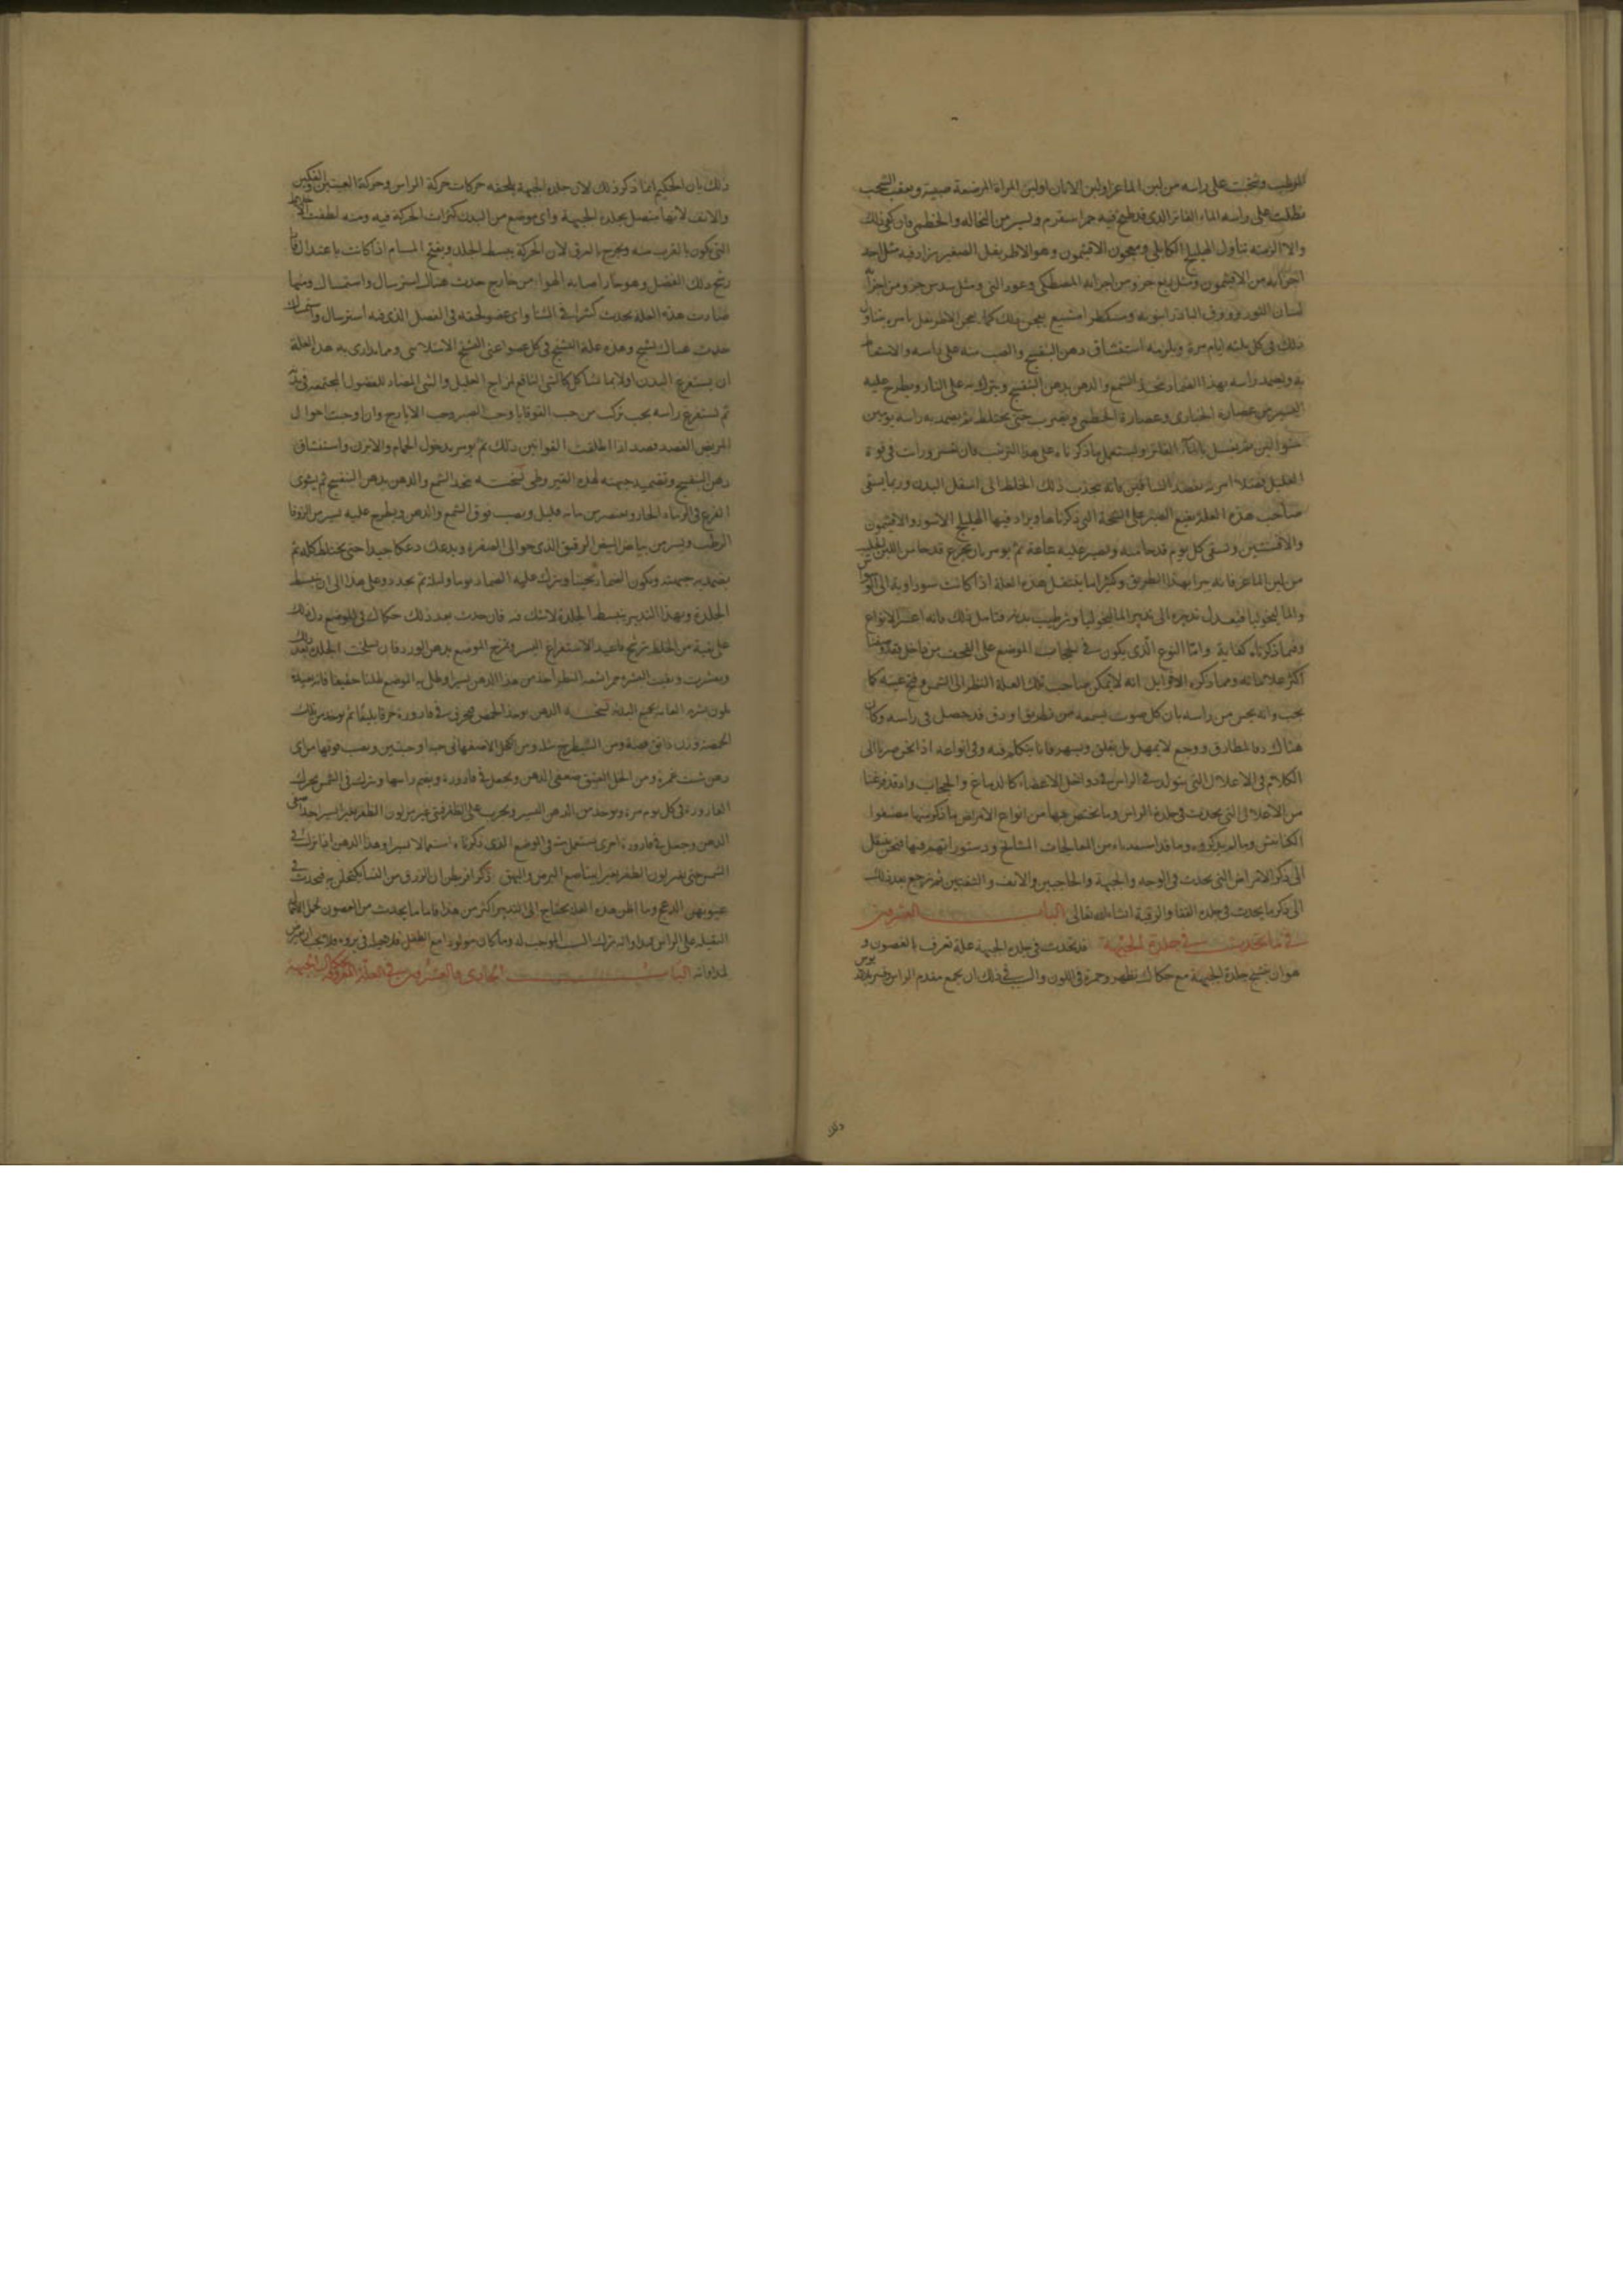 المرطب وتخبت على راسه من لبن الماعز او لبن الاتان او لبن المراة المرضعة صبية ويعقب التحلب
نطلت على راسه الماء الفاتر الذي قد طبخ فيه ويسير من النخاله والخطمى فان كفى ذلك
والا الزمته تناول الهليلج الكابلى ومعجون الافيثمون وهو الاطريفل الصغير يزاد فيه مثل احد
اجزائه من الافيثمون ومثل ربع جزو من اجزائه المصطكى وعود التى ومثل سدس جزو من اجزائه
لسان الثور وورق البادرنبويه يعجن ذلك كما يعجن الاطريفل يامره بتناول
ذلك فى كل ثلثه ايام مرة ويلزمه استنشاق دهن البنفسج والصب منه على راسه والاستعاط
به ويضمد راسه بهذا الضماد تتخذ الشمع والدهن بدهن البنفسج ويترك على النار ويطرح عليه
اليسير من عصارة الخبازى وعصارة الخطمى ويضرب حتى يختلط ثم يضمد به راسه يومين
متوالين ثم يغسل بالماء الفاتر ويستعمل ما ذكرناه على هذا الترتيب فان قصر ورايت فى قوة
العليل فضلا امرته بفصد الساقين فانه يجذب ذلك الخلط الى اسفل البدن وربما يسقى
صاحب هذه العلة نقيع الصبر على النسخة التى ذكرناها ويزاد فيها الهليلج الاسود والافيثمون
والافسنتين ويسقى كل يوم قدحا منه ويصبر عليه ساعة ثم يومر بان يجرع قدحا من اللبن الحليب
من لبن الماعز فانه يبرا بهذا الطريق وكثيرا ما ينتقل هذه العلة اذا كانت سوداوية الى
والماليخوليا فيعدل تدبيره الى تدبير الماليخوليا وترطيب بدنه فتامل ذلك فانه اعسر الانواع
وفيما ذكرناه كفاية واما النوع الذى يكون فى الحجاب الموضع على القحف من داخل فقد وصفنا
اكثر علاماته ومما ذكره الاقوايل انه لا يمكن صاحب تلك العلة النظر الى الشمس وفتح عينيه كما
يجب وانه يحس من راسه بان كل صوت يسمعه من تطريق او دق قد حصل فى راسه وكان
هناك دق المطارق ووجع لا يمهل بل يقلق ويسهر فانا نتكلم فيه وفى انواعه اذا نحن صرنا الى
الكلام فى الاعلال التى تتولد فى الراس فى دواخل الاعضاء كالدماغ والحجاب واذ قد فرغنا
من الاعلال التى تحدث فى جلدة الراس وما يختص بها من انواع الامراض ما ذكر منها مصنفوا
الكنانيش وما لم يذكروه وما قد استفدناه من المعالجات المشايخ ودستوراتهم فيها فنحن ننتقل
الى ذكر الامراض التى تحدث فى الوجه والجبهة والحاجبين والانف والشفتين ثم نرجع بعد ذلك
الى ذكر ما يحدث فى جلدة القفا والرقبة ان شاء الله تعالى الباب العشرون
فى ما يحدث فى جلدة الجبهة قد يحدث فى جلدة الجبهة علة تعرف بالغصون و
هو ان يتشنج جلدة الجبهة مع حكاك يظهر وحمرة فى اللون والسبب فى ذلك ان يجمع مقدم الراس
ذلك
ذلك بان الحكيم انما ذكر ذلك لان جلدة الجبهة يلحقه حركات حركة الراس وحركة العينين والفكين
والانف لانها متصل بجلدة الجبهة واى موضع من البدن كثرت الحركة فيه ومنه لطفت الاخلاط
التى يكون بالقرب منه ويخرج بالعرق لان الحركة يبسط الجلد ويفتح المسام اذا كانت باعتدال فان
رشح ذلك الفضل وهو حار اصابه الهواء من خارج حدث هناك استرسال واستمساك ومنها
صارت هذه العلة يحدث كثيرا فى الشتا واى عضو لحقه فى الفصل الذى فيه استرسال واستمساك
حدث هناك تشنج وهذه علة التشنج فى كل عضو اعنى التشنج الامتلاءى ومما يداوى به هذه العلة
ان يستفرغ البدن اولا بما يشاكل كالشى النافع لمزاج العليل والشى المضاد للفضول المجتمعة فى
ثم تستفرغ راسه بحب تركب من حب القوقايا وحب الصبر وحب الايارج وان اوجبت احوال
المريض الفصد فصد اذا اطلقت القوانين ذلك ثم يومر بدخول الحمام والابزن واستنشاق
دهن البنفسج وتضميد جبهته بهذه القيروطى نسخته يتخذ الشمع والدهن بدهن البنفسج ثم يشوى
القرع فى الرماد الحار ويعتصر من مائه قليل ويصب فوق الشمع والدهن ويطرح عليه يسير من الزوفا
الرطب ويسير من بياض البيض الرقيق الذى حوالى الصفرة ويدعك دعكا جيدا حتى يختلط كله ثم
يضمد به جبهته ويكون الضماد ثخينا ويترك عليه الضماد يوما وليلة ثم يجدد وعلى هذا الى ان ينبسط
الجلدة وبهذا التدبير ينبسط الجلدة لا شك فيه فان حدث بعد ذلك حكاك فى الموضع دل ذلك
على بقية من الخلط ترشح فاعيد الاستفراغ اليسير وتمريخ الموضع بدهن الورد فان سلخت الجلدة بعد ذلك
وتقشرت وبقيت البشرة حمرا اخذ من هذا الدهن يسيرا وطلى به الموضع طليا خفيفا فانه يعيده
لون بشرته نسخة الدهن يوخذ الحمص فيحرق فى قارورة حرقا بليغا ثم يوخذ من ذلك
الحمص وزن دانق فضة ومن الشيطرج مثله ومن الكحل الاصفهانى حبة او حبتين ويصب فوقها من اى
دهن شئت غمرة ومن الخل العتيق ضعفى الدهن ويجعل فى قارورة ويضم راسها ويترك فى الشمس يحرك
القارورة فى كل يوم مرة ويوخذ من الدهن اليسير ويجرب على الظفر فمتى غير من لون الظفر تغيرا يسيرا جدا صفى
الدهن وجعل فى قارورة اخرى يستعمل منه فى الموضع الذى ذكرناه استعمالا يسيرا وهذا الدهن اذا ترك فى
الشمس حتى يغير لون الظفر تغيرا بينا صبغ البرص والبهق ذكر اقريطن ان الزرق من النسا يكتحلن به فيحدث فى
عيونهن الدعج وما اظن هذه العلة يحتاج الى التدبير اكثر من هذا فاما ما يحدث من الغصون لحمل الاثقال
الثقيلة على الراس فمداواته ترك السبب الموجب له وما كان مولودا مع الطفل فلا حيلة فى بروه ولا يجب ان يتعرض
لمداواته الباب الحادى والعشرون فى العلة المعروفة الجبهة